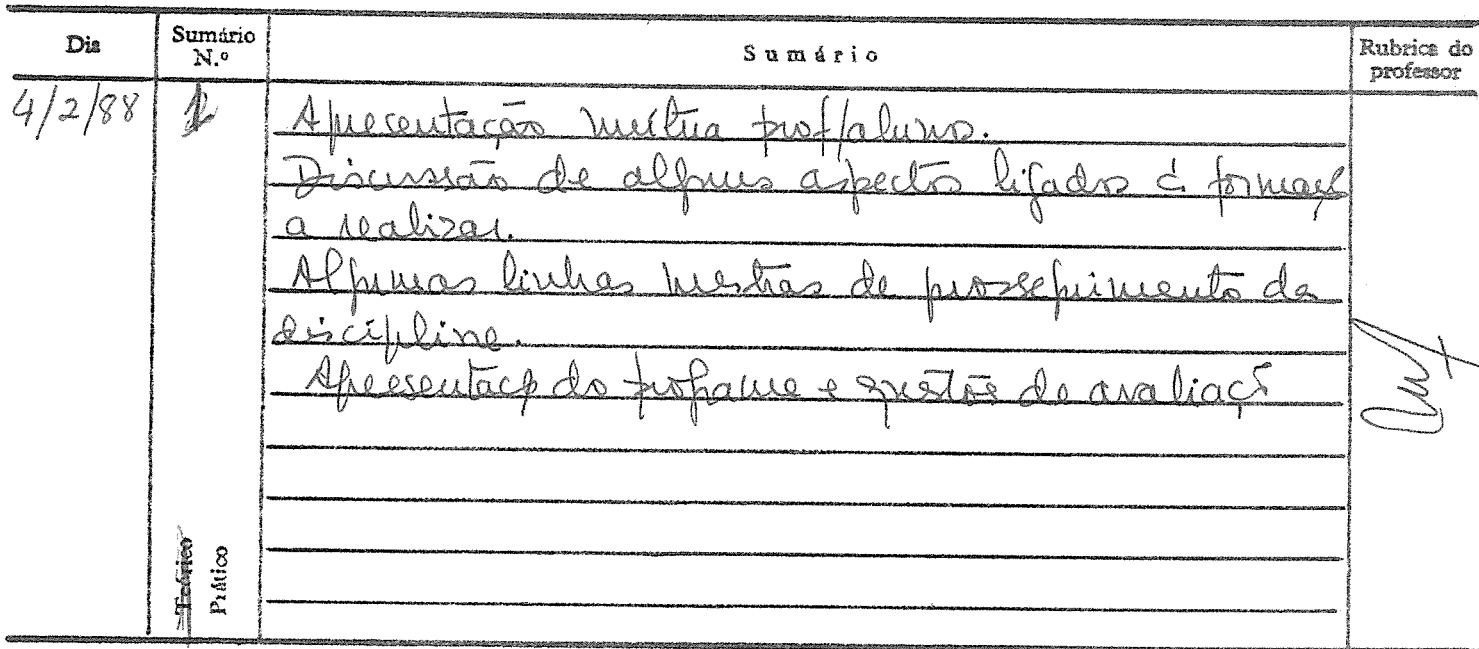 Dia
Sumário N.º
Sumário
Rubrica do professor
4/2/88
1
Apresentação mútua prof/aluno.
Discussão de alguns aspectos ligados à formaç
a realizar.
Algumas linhas mestras de prosseguimento da
disciplina.
Apresentaç do programa e questões de avaliaç
Teórico
Prático